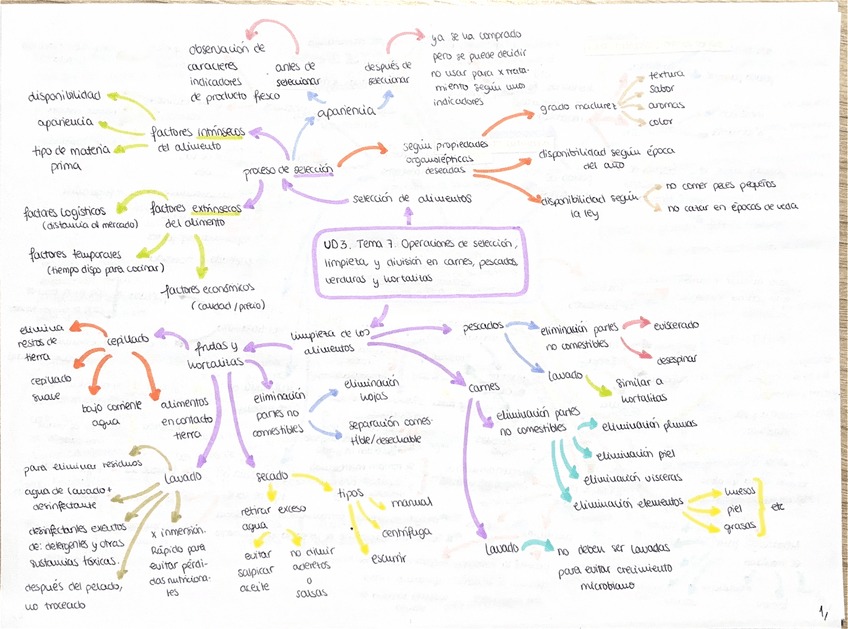 observación de
caracteres
indicadores
de producto fresco
antes de
seleccionar
después de
seleccionar
ya se ha comprado
pero se puede decidir
no usar para x trata-
miento según unos
indicadores
apariencia
disponibilidad
apariencia
tipo de materia
prima
factores intrínsecos
del alimento
proceso de selección
según propiedades
organolépticas
deseadas
grado madurez
textura
sabor
aromas
color
disponibilidad según época
del año
disponibilidad según
la ley
no comer peces pequeños
no cazar en épocas de veda
selección de alimentos
factores logísticos
(distancia al mercado)
factores extrínsecos
del alimento
factores temporales
(tiempo dispo para cocinar)
factores económicos
(calidad/precio)
UD3. Tema 7. Operaciones de selección,
limpieza y división en carnes, pescados
verduras y hortalitas
limpieza de los
alimentos
frutas y
hortalitas
cepillado
elimina
restos de
tierra
cepillado
suave
bajo corriente
agua
alimentos
en contacto
tierra
eliminación
partes no
comestibles
eliminación
hojas
separación comes-
tible/desechable
pescados
eliminación partes
no comestibles
eviscerado
desespinar
lavado
similar a
hortalitas
carnes
eliminación partes
no comestibles
eliminación plumas
eliminación piel
eliminación vísceras
eliminación elementos
huesos
piel
grasas
etc
lavado
no deben ser lavadas
para evitar crecimiento
microbiano
lavado
para eliminar residuos
agua de lavado +
desinfectante
desinfectantes exentos
de: detergentes y otras
sustancias tóxicas.
después del pelado,
no troceado
x inmersión.
Rápida para
evitar pérdi-
das nutriciona-
les
secado
retirar exceso
agua
evitar
salpicar
aceite
no diluir
aderetos
o
salsas
tipos
manual
centrífuga
escurrir
1,